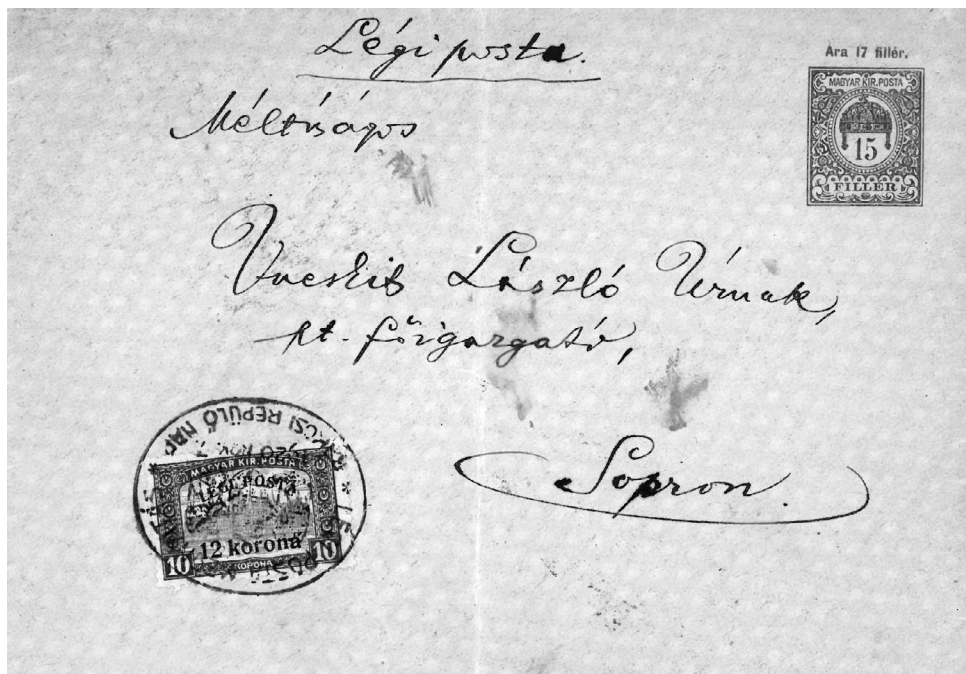 Légi posta.
Ára 17 fillér.
MAGYAR KIR. POSTA
15
FILLÉR
Méltóságos
László Úrnak,
kt. főigazgató,
Sopron.
REPÜLŐ NAP
MAGYAR KIR. POSTA
LÉGI POSTA
12 korona
10 KORONA 10